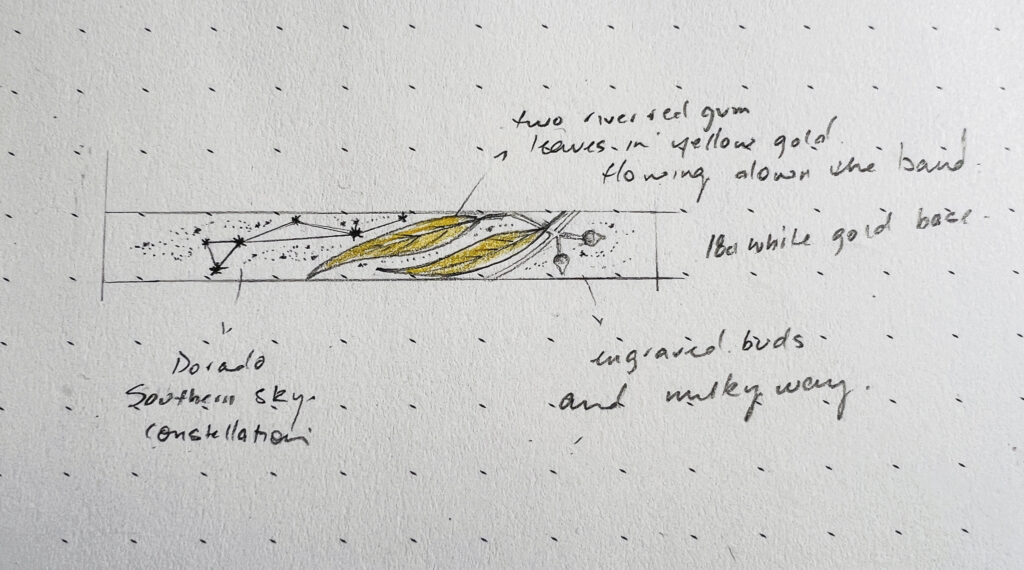 two river red gum
leaves in yellow gold
flowing down the band.
18ct white gold base.
Dorado
Southern sky
constellation
engraved buds
and milky way.